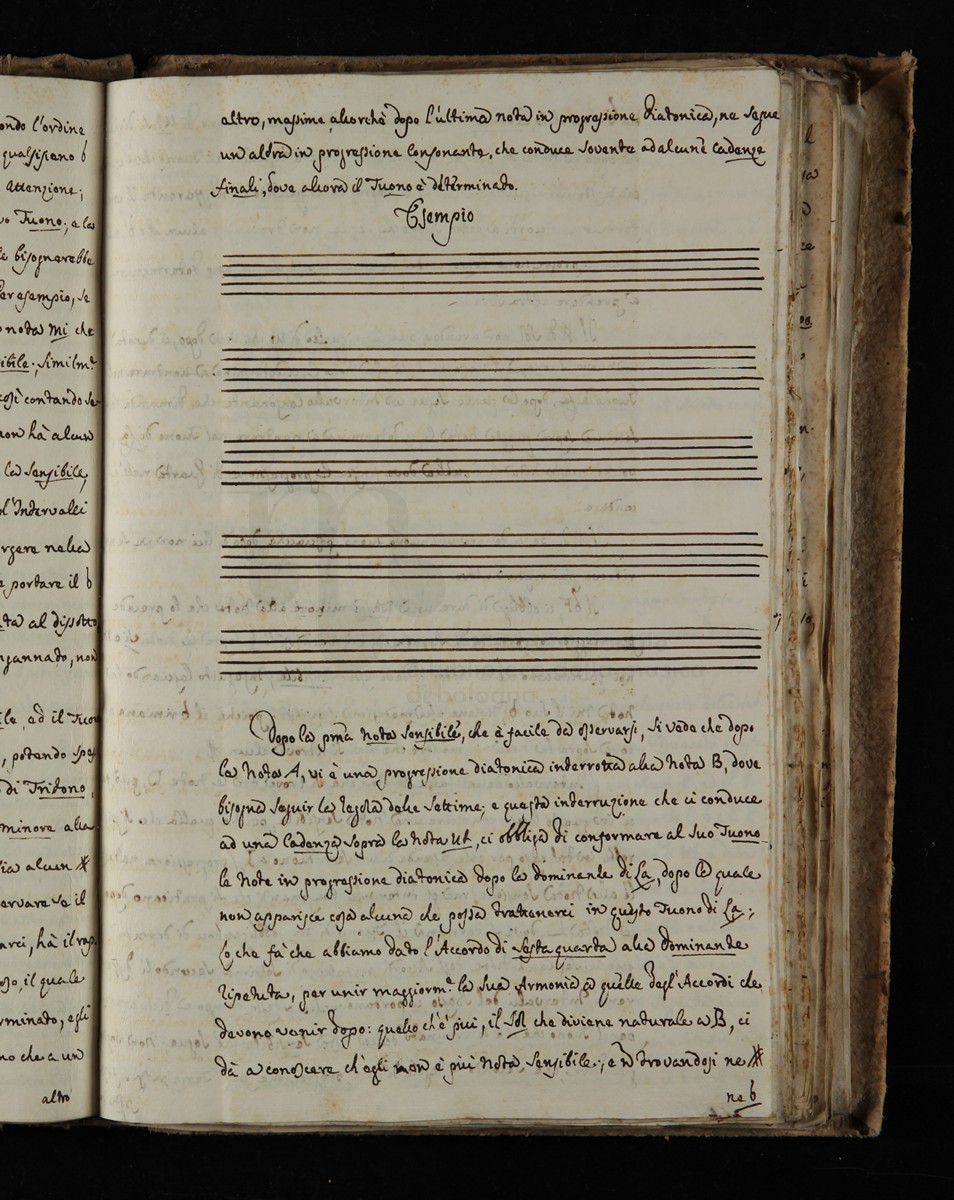 ondo l'ordine
qualsisiano b
attenzione;
vo Tuono; e la
bisognarebbe
er esempio, se
nota Mi che
ibile; similm.te
così contando
non hà alcun
la sensibile,
l'Intervalli
rgere nella
a portare il b
ta al dissotto
ngannado, non
ile ad il Tuon
, potendo
di Tritono,
minore alla
ia alcun #
ervare se il
arci, hà il rap
, il quale
rminato, egli
no che a un
altro
altro, massime allorchè dopo l'ultima nota in progressione diatonica, ne segue
un altra in progressione consonante, che conduce sovente ad alcune Cadenze
finali, dove allora il Tuono è determinato.
Esempio
Dopo la pma nota sensibile, che è facile da osservarsi, si vede che dopo
la nota A, vi è una progressione diatonica interrotta alla nota B, dove
bisogna seguir la regola delle settime; e questa interruzione che ci conduce
ad una cadenza sopra la nota Ut, ci obbliga di conformare al suo Tuono
le note in progressione diatonica dopo la dominante di La, dopo la quale
non apparisce cosa alcuna che possa trattenerci in questo Tuono di La;
lo che fà che abbiamo dato l'Accordo di Sesta quarta alla dominante
ripetuta, per unir maggiorm.te la sua Armonia a quella degl'Accordi che
devono venir dopo: quello ch'è piui, il Sol che diviene naturale a B, ci
dà a conoscere ch'egli non è piui nota sensibile; e n trovandosi ne #
ne b